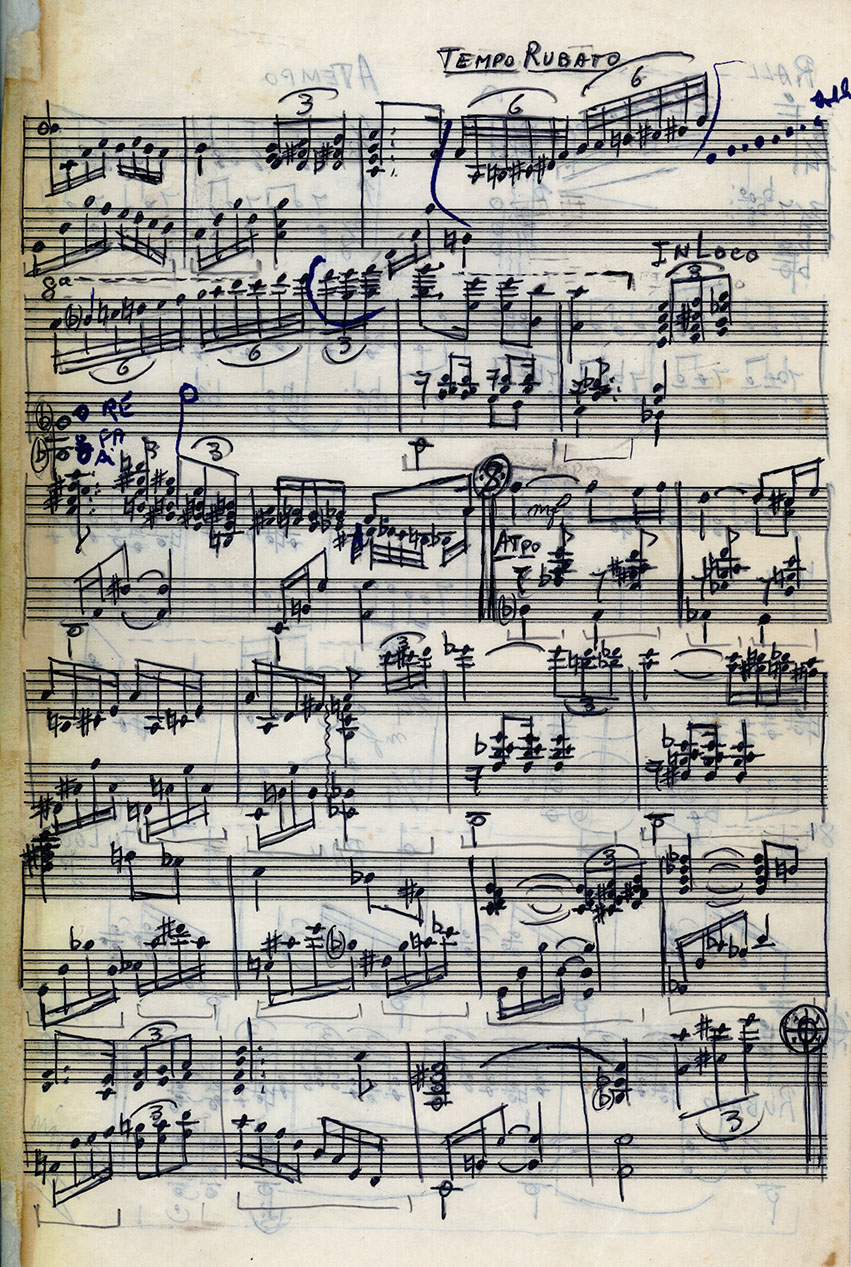 TEMPO RUBATO
3
6
6
3
8a
IN LOCO
6
6
3
RÉ
FA
3
3
mf
ATPO
3
3
3
3
3
3